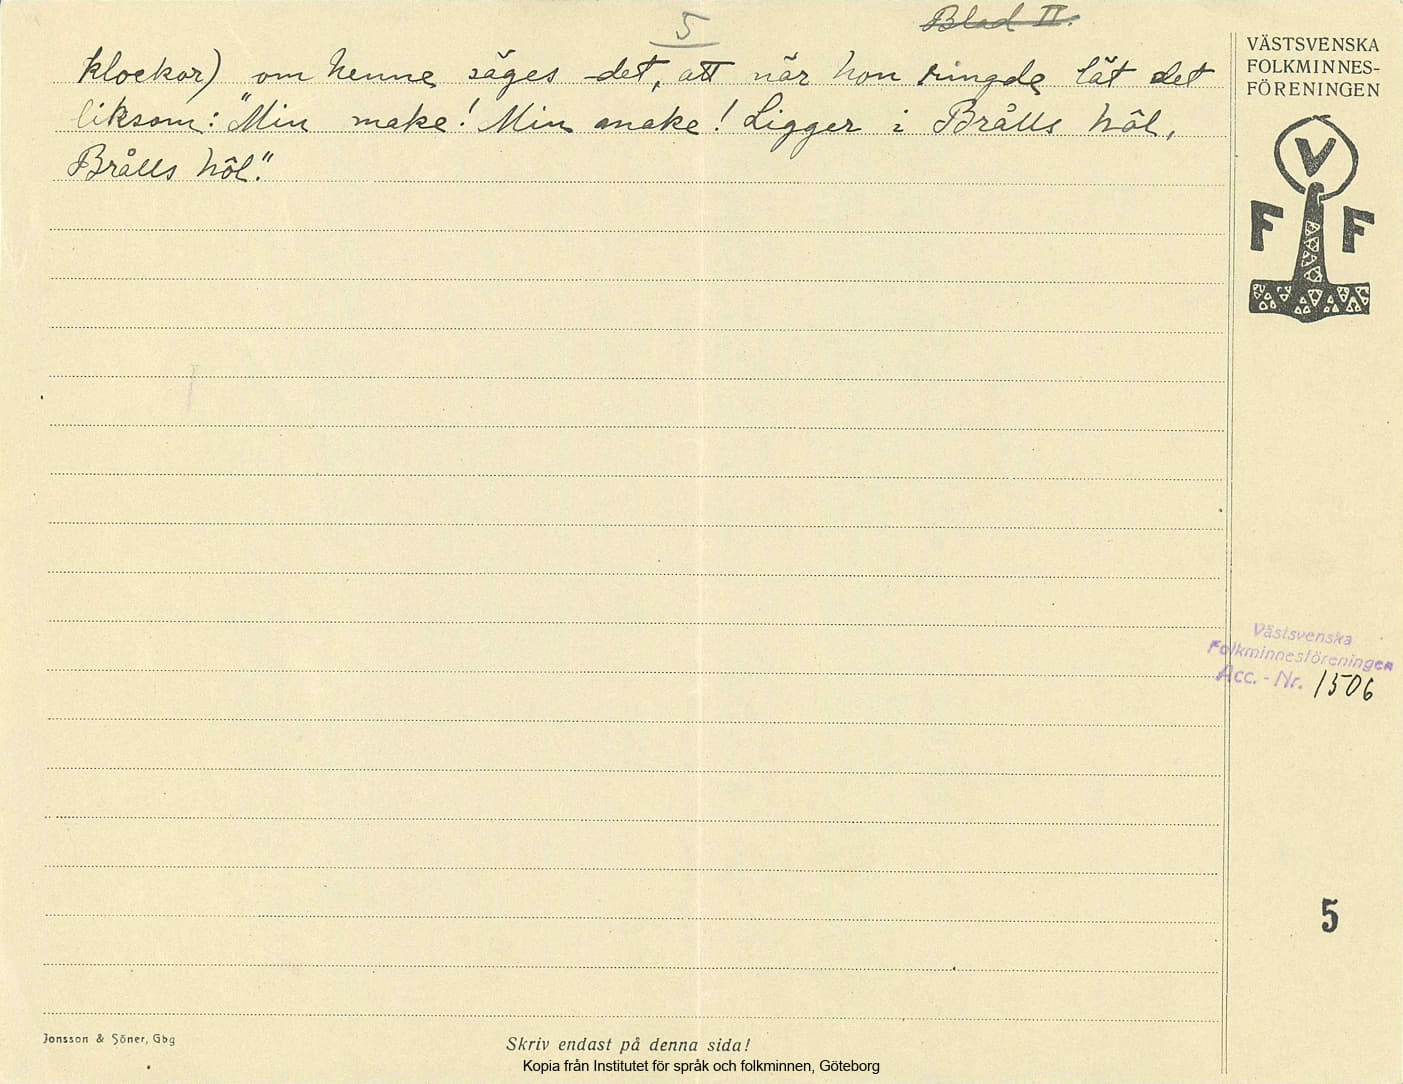 5
Blad II.
klockor) om henne säges det, att när hon ringde lät det
liksom: "Min make! Min make! Ligger i Brålls höl,
Brålls höl."
VÄSTSVENSKA
FOLKMINNES-
FÖRENINGEN
V
F F
Västsvenska
Folkminnesföreningen
Acc. - Nr. 1506
5
Jonsson & Söner, Gbg
Skriv endast på denna sida!
Kopia från Institutet för språk och folkminnen, Göteborg